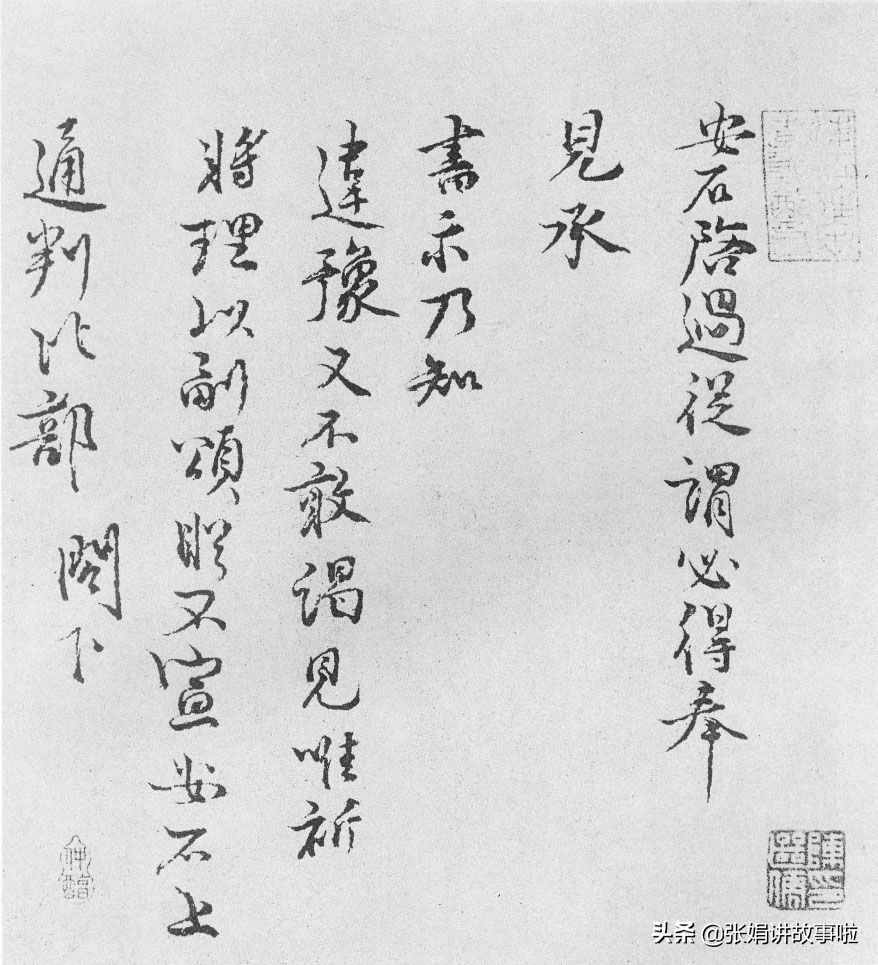 安石啓過從謂必得奉
見承
書示乃知
違豫又不敢謁見唯祈
將理以副頌眷不宣安石上
通判比部 閤下
头条 @张娟讲故事啦